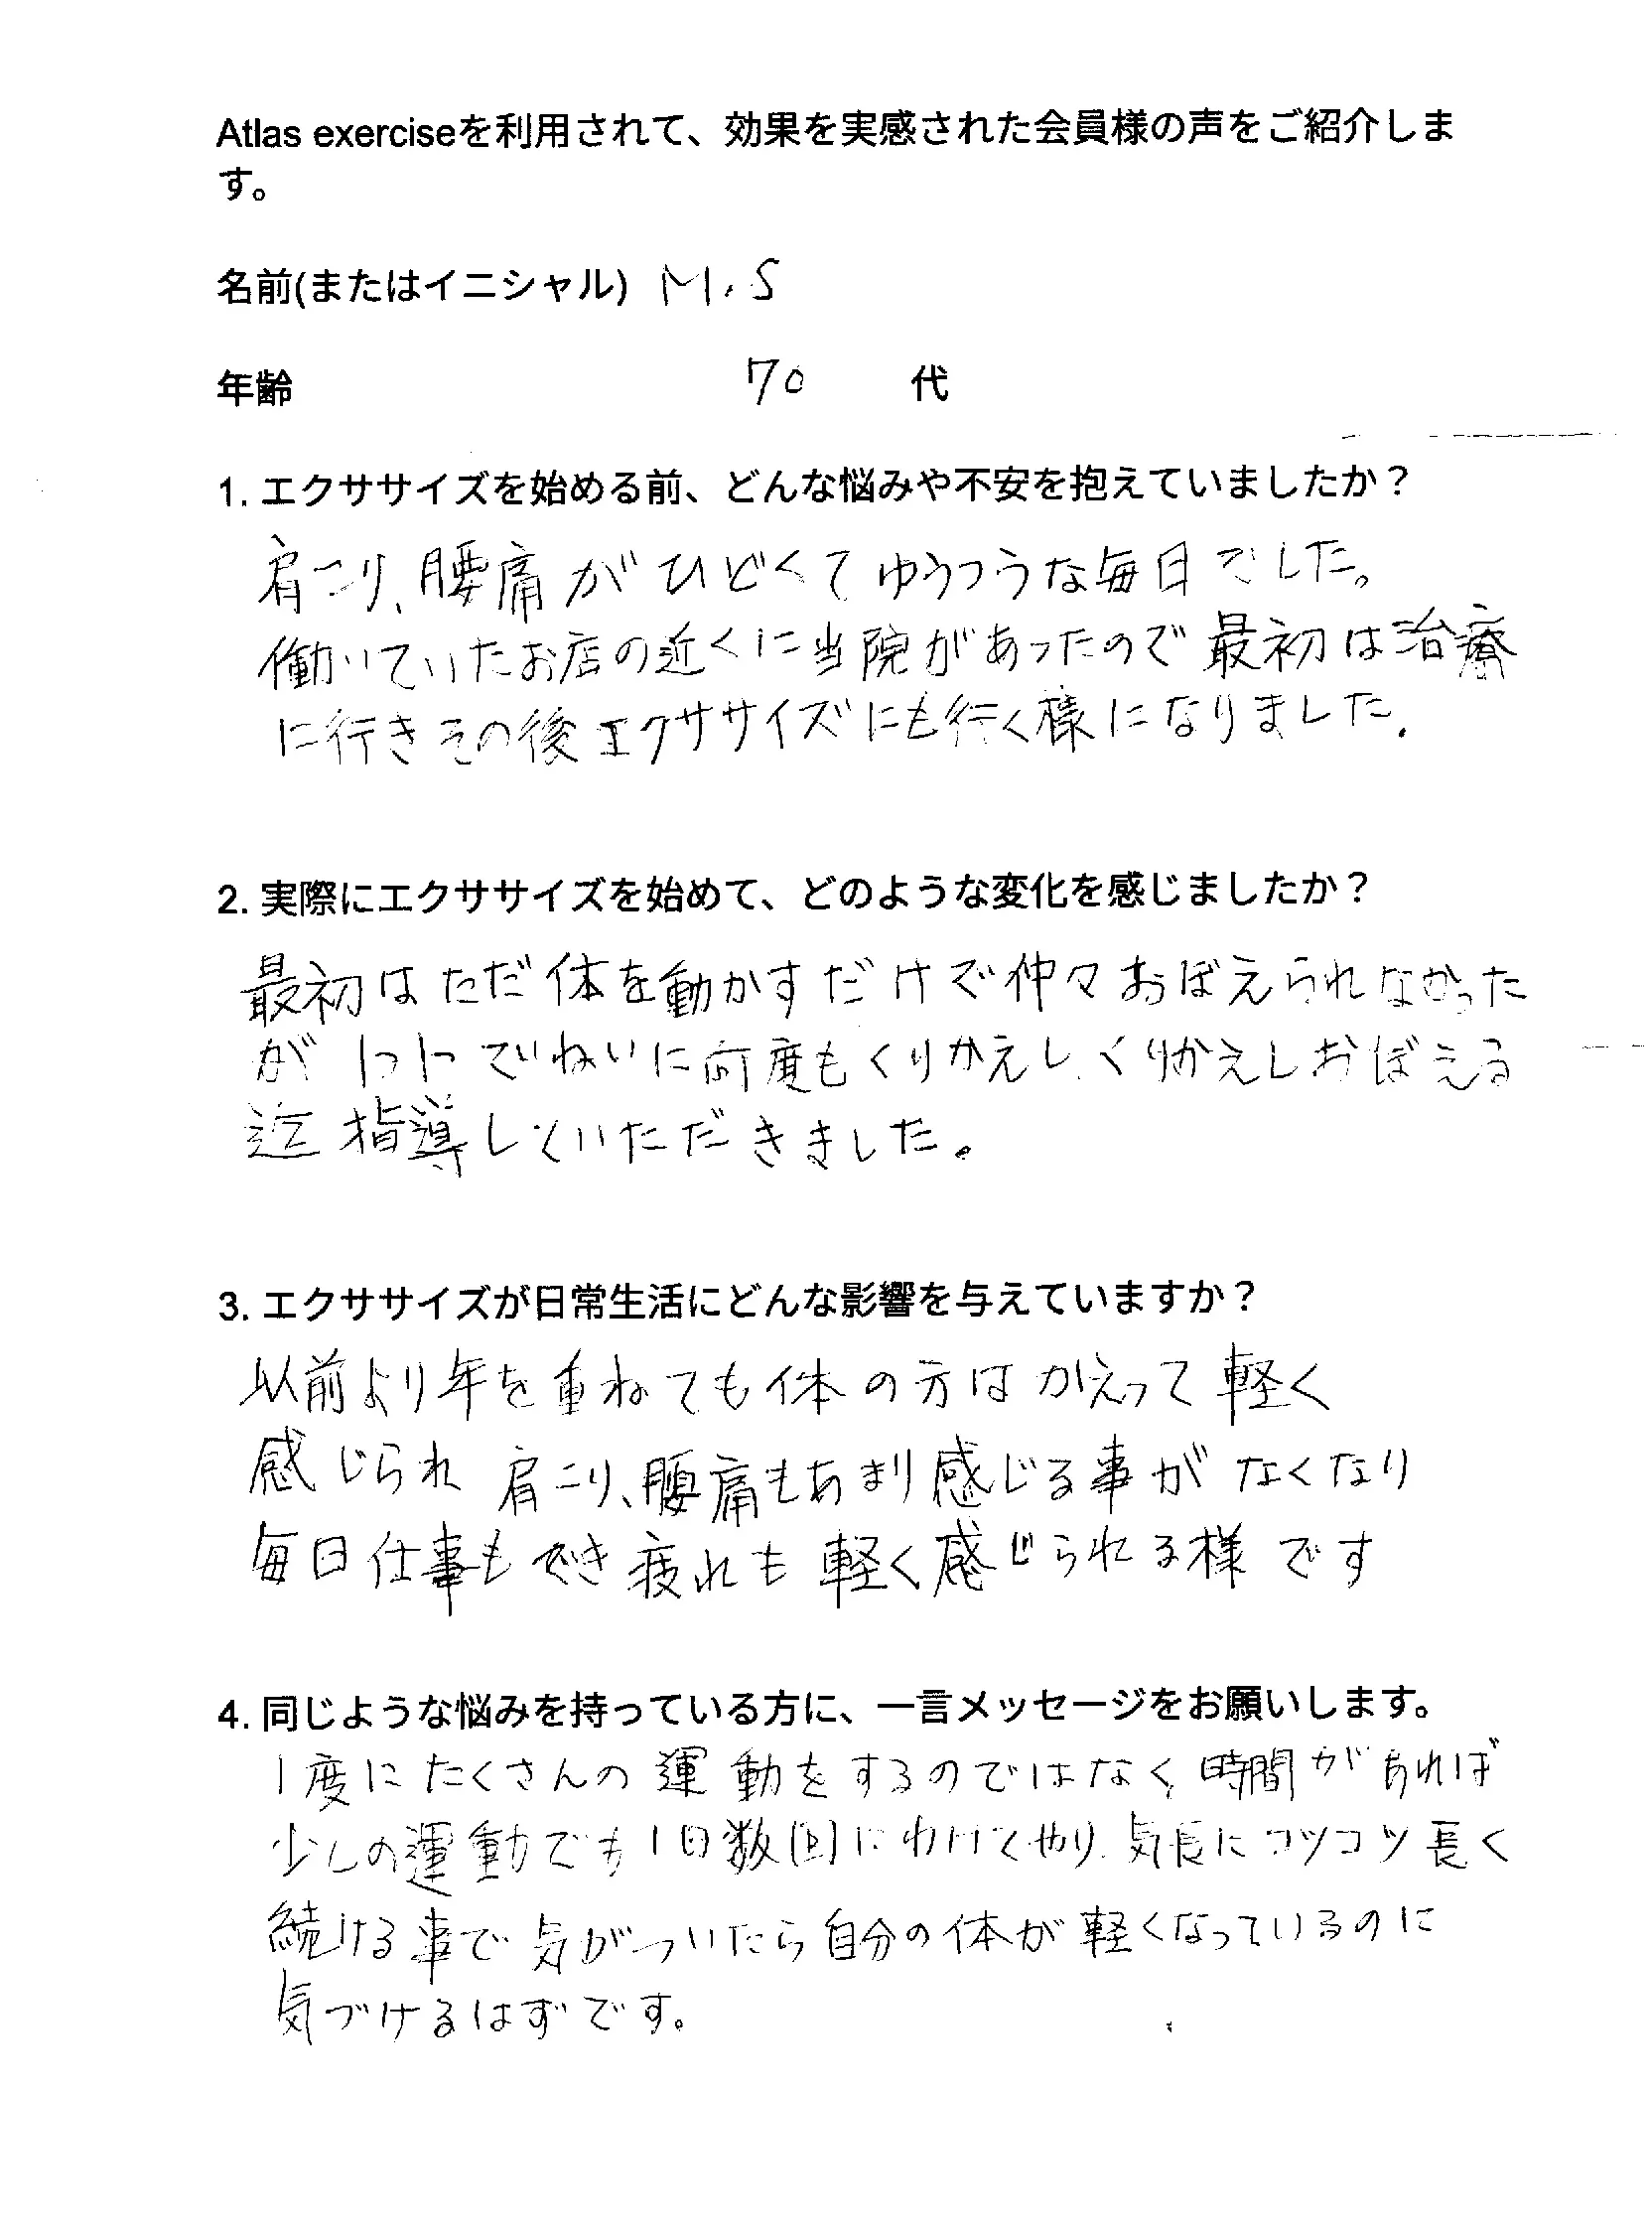 Atlas exerciseを利用されて、効果を実感された会員様の声をご紹介しま
す。
名前(またはイニシャル) M.S
年齢 70 代
1. エクササイズを始める前、どんな悩みや不安を抱えていましたか？
肩こり、腰痛がひどくてゆううつな毎日でした。
働いていたお店の近くに当院があったので最初は治療
に行きその後エクササイズにも行く様になりました.
2. 実際にエクササイズを始めて、どのような変化を感じましたか？
最初はただ体を動かすだけで仲々おぼえられなかった
が 1つ1つていねいに何度もくりかえしくりかえしおぼえる
迄指導していただきました。
3. エクササイズが日常生活にどんな影響を与えていますか？
以前より年を重ねても体の方はかえって軽く
感じられ 肩こり、腰痛もあまり感じる事がなくなり
毎日仕事もでき疲れも軽く感じられる様です
4. 同じような悩みを持っている方に、一言メッセージをお願いします。
1度にたくさんの運動をするのではなく、時間があれば
少しの運動でも1日数回にわけてやり、気長にコツコツ長く
続ける事で気がついたら自分の体が軽くなっているのに
気づけるはずです。